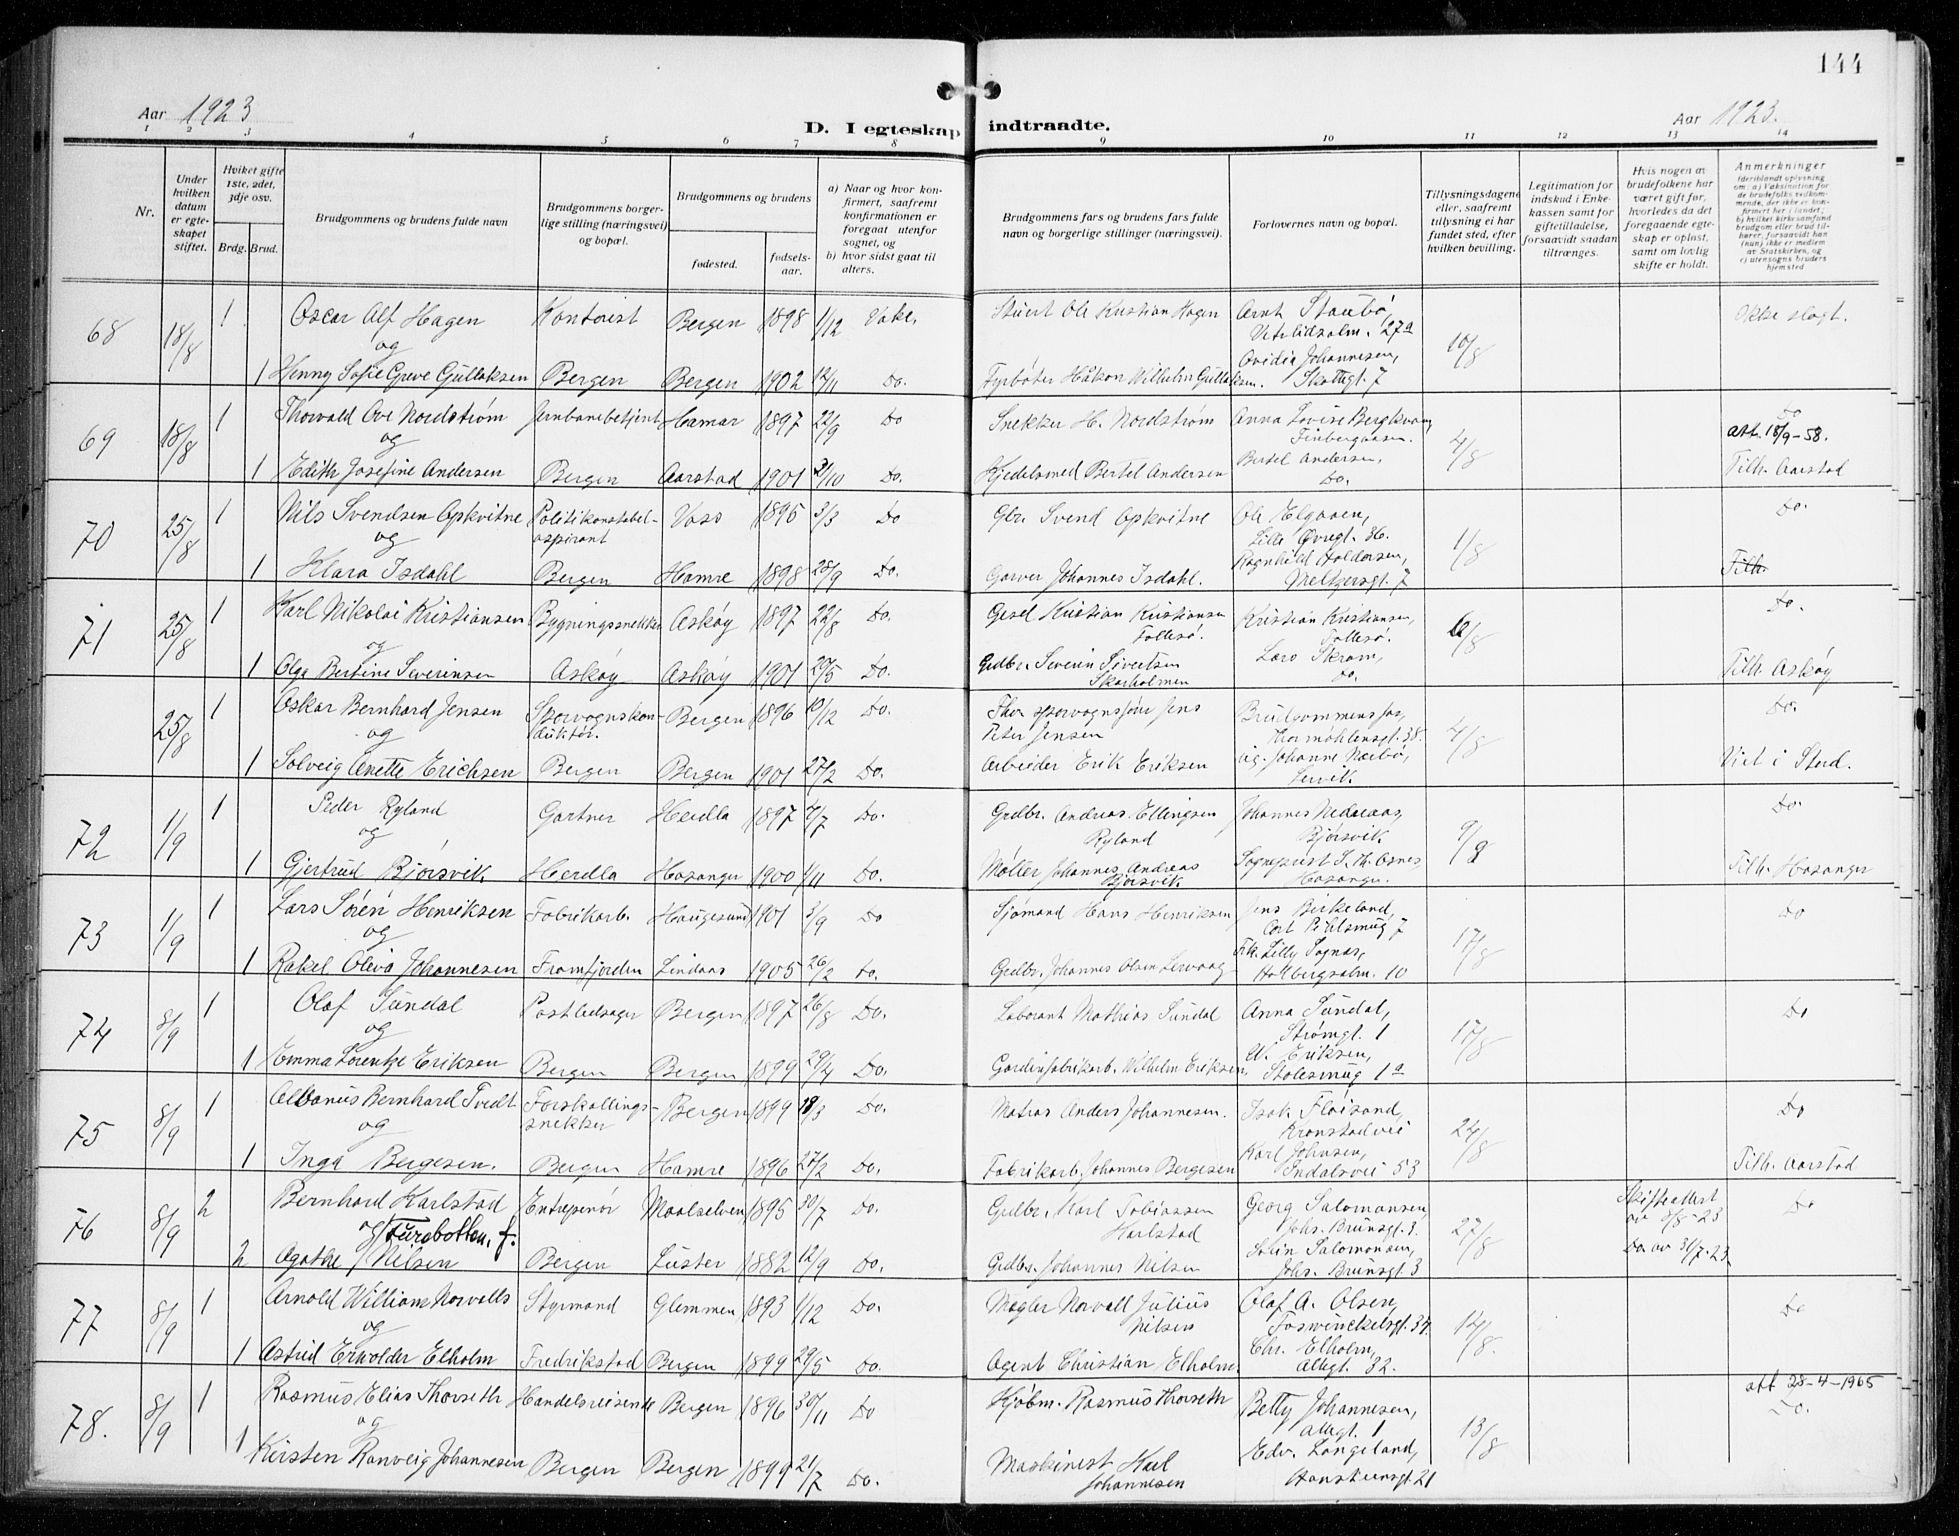 144
Aar 1923
D. I egteskap indtraadte.
Aar 1923.
1 2 3 4 5 6 7 8 9 10 11 12 13 14
Nr.
Under hvilken datum er egteskapet stiftet.
Hviket gifte 1ste, 2det, 3dje osv.
Brdg. Brud.
Brudgommens og brudens fulde navn
Brudgommens borgerlige stilling (næringsvei) og bopæl.
Brudgommens og brudens
fødested.
fødselsaar.
a) Naar og hvor konfirmert, saafremt konfirmationen er foregaat utenfor sognet, og
b) hvor sidst gaat til alters.
Brudgommens fars og brudens fars fulde navn og borgerlige stillinger (næringsvei).
Forlovernes navn og bopæl.
Tillysningsdagene eller, saafremt tillysning ei har fundet sted, efter hvilken bevilling.
Legitimation for indskud i Enkekassen samt for giftetilladelse, forsaavidt saadan tiltrænges.
Hvis nogen av brudefolkene har været gift før, hvorledes da det foregaaende egteskap er opløst, samt om lovlig skifte er holdt.
Anmerkninger (deriblandt oplysning om: a) Vaksination for de brudefolks vedkommende, der ikke er konfirmert her i landet, b) hvilket kirkesamfund brudgom eller brud tilhører, forsaavidt han (hun) ikke er medlem av Statskirken, og c) utensogns bruders hjemsted
68 18/8 1 Oscar Alf Hagen Kontorist Bergen 1898 1/12 Stuert Ole Kristian Hagen Arnt Staubø, 27a 10/8 Ikke slagt.
og
1 Henny Sofie Greve Gullaksen Bergen Bergen 1902 12/11 Do. Fyrbøter Håkon Wilhelm Gullaksen. Ovidia Johannesen, Skottegt. 7
69 18/8 1 Thorvald Ove Nordstrøm Jernbanebetjent Hamar 1897 22/9 Do Snekker H. Nordstrøm Anna Lovise Bergkvam, Finbergaasen. 4/8 Do
att. 18/9-58.
og
1 Edith Josefine Andersen Bergen Aarstad 1901 2/10 Do. Kjedelsmed Bertel Andersen Bertel Andersen, Do. Tilh. Aarstad
70 25/8 1 Nils Svendsen Opkvitne Politikonstabel-aspirant Voss 1895 3/3 Do Gbr. Svend Opkvitne Ole Elgaaen, Lille Øvregt. 36. 1/8 Do.
og
1 Klara Isdahl Bergen Hamre 1898 28/9 Do. Garver Johannes Isdahl. Ragnhild Haldorsen, Meltzersgt. 7 Tilh.
71 25/8 1 Karl Nikolai Kristiansen Bygningssnekker Askøy 1897 22/8 Do. Gesel Kristian Kristiansen Follesø. Kristian Kristiansen, Follesø. Do.
og
1 Olga Bertine Severinsen Askøy Askøy 1901 20/5 Do. Grdbr. Severin Sivertsen Skarholmen Lars Skram, Do. Tilh. Askøy
25/8 1 Oskar Bernhard Jensen Sporvognskonduktør. Bergen 1896 10/12 Do. Jens Peter Jensen Brudgommens far, Thormøhlensgt. 38. 4/8 Do.
og
1 Solveig Anette Erichsen Bergen Bergen 1901 27/2 Do. Arbeider Erik Eriksen og Johanne Næsbø, Viet i Stord.
72 1/9 1 Peder Ryland Gartner Herdla 1897 7/7 Do. Grdbr. Andreas Ellingsen Ryland Johannes Nedreaas, Bjørsvik 9/8 Do.
og
1 Gjertrud Bjørsvik Herdla Hosanger 1900 1/11 Do. Møller Johannes Andreas Bjørsvik Sogneprest S. Th. Osnes Hosanger. Tilh. Hosanger
73 1/9 1 Lars Søren Henriksen Fabrikarb. Haugesund 1901 3/9 Do Sjømand Hans Henriksen Jens Birkeland, Cort Pihlsmug 7 17/8 Do
og
1 Rakel Oliva Johannesen Framfjorden Lindaas 1905 26/2 Do. Grdbr. Johannes Olsen Lervaag Frk. Lilly Sognas, Holbergsalm. 10
74 8/9 1 Olaf Sundal Postbetsager Bergen 1897 26/8 Do. Laborant Mathias Sundal Anna Sundal, Strømgt. 1 17/8 Do
og
1 Emma Lorentze Eriksen Bergen Bergen 1899 29/4 Do. Gardinfabrikarb. Wilhelm Eriksen, W. Eriksen, Stølesmug 1a
75 8/9 1 Albanus Bernhard Tvedt Forskallingssnekker Bergen 1899 18/3 Do. Matros Anders Johannesen. Isak Fløisand, Kronstadvei 24/8 Do
og
1 Inga Bergesen. Bergen Hamre 1896 27/2 Do. Fabrikarb. Johannes Bergesen Karl Johnsen, Indalsvei 53 Tilh. Aarstad
76 8/9 2 Bernhard Karlstad Entreprenør Maalselven 1895 30/7 Do. Grdbr. Karl Tobiassen Karlstad Georg Salomonsen, Johs. Brunsgt. 3. 27/8 Skifteattest av 8/8-23 Do
og Furebotten, f.
2 Agathe / Nilsen Bergen Luster 1882 12/9 Do. Grdbr. Johannes Nilsen Salomonsen, Johs. Brunsgt. 3 Do. av 31/7-23
77 8/9 1 Arnold William Norvalls Styrmand Glemmen 1893 1/12 Do. Mægler Norvall Julius Nilsen Olaf A. Olsen, Fosswinckelsgt. 37. 14/8 Do
og
1 Astrid Erwolder Elholm Fredrikstad Bergen 1899 29/5 Do. Agent Christian Elholm. Chr. Elholm, Allegt. 32.
att 28-4-1965
78. 8/9 1 Rasmus Elias Thorseth Handelsreisende Bergen 1896 30/11 Do Kjøbm. Rasmus Thorseth Betty Johannesen, Allegt. 1 13/8 Do.
og
1 Kirsten Ranveig Johannesen Bergen Bergen 1899 21/7 Do. Maskinist Karl Johannesen Edv. Langeland, Hansteensgt. 21